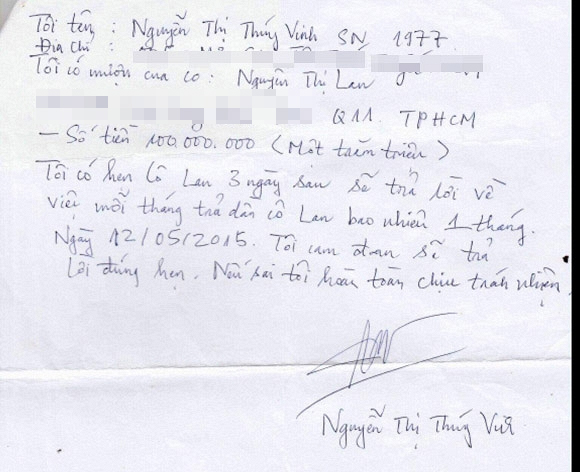 Tôi tên : Nguyễn Thị Thúy Vinh SN 1977
Địa chỉ :
Tôi có mượn của cô : Nguyễn Thị Lan
Q11. TPHCM
– Số tiền 100.000.000 (Một trăm triệu)
Tôi có hẹn Cô Lan 3 ngày sau sẽ trả lời về
việc mỗi tháng trả dần cô Lan bao nhiêu 1 tháng.
Ngày 12/05/2015. Tôi cam đoan sẽ trả
lời đúng hẹn. Nếu sai tôi hoàn toàn chịu trách nhiệm.
Nguyễn Thị Thúy